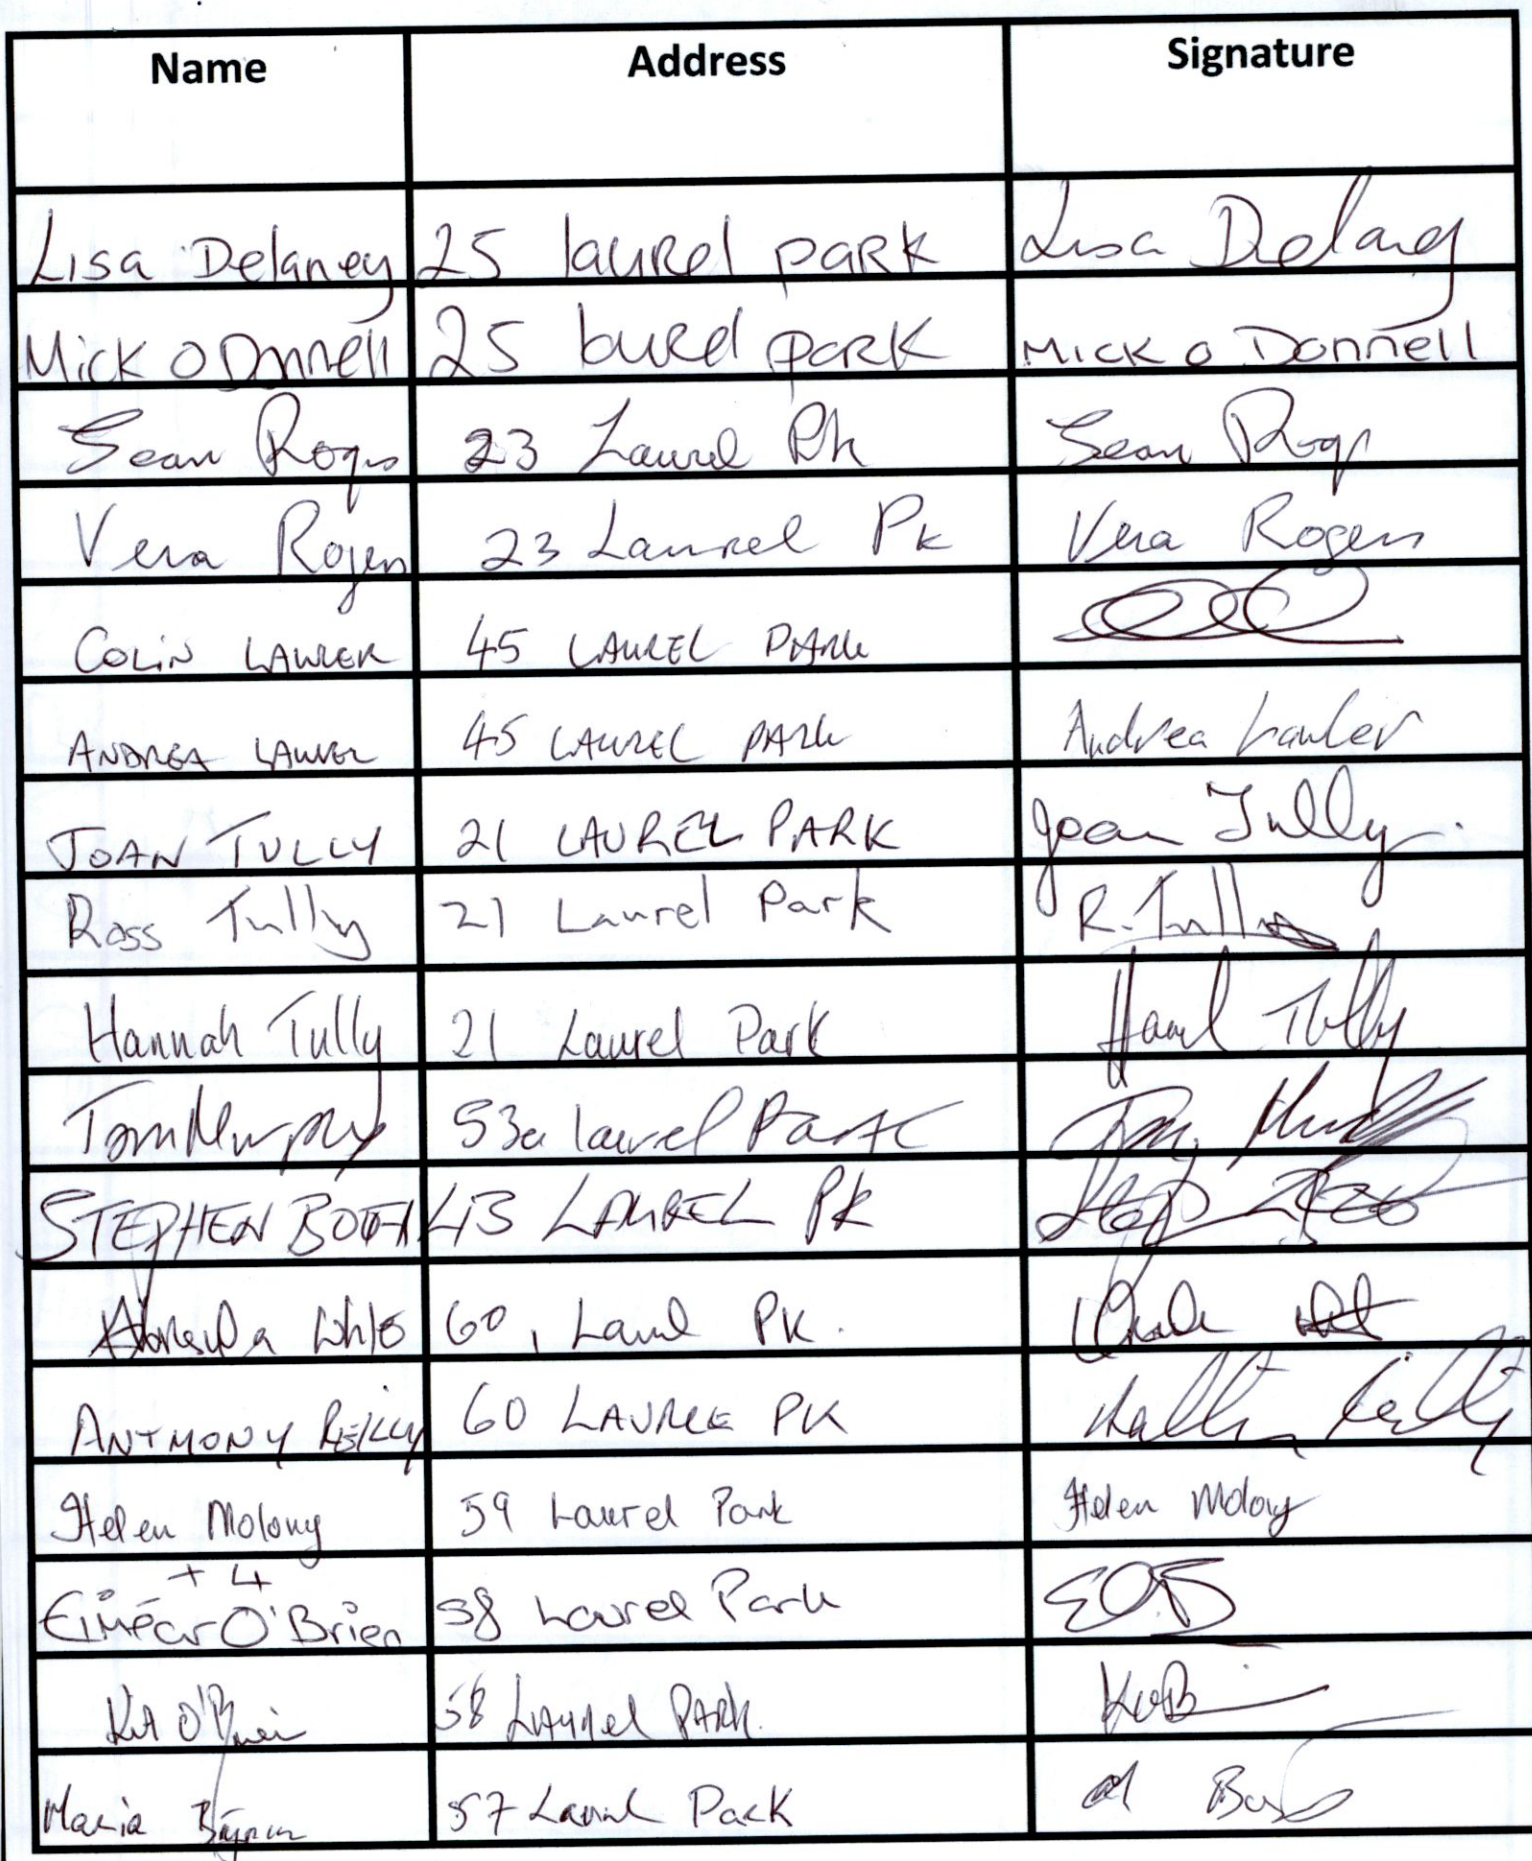 Name Address Signature
Lisa Delaney 25 laurel park Lisa Delaney
Mick O Donnell 25 laurel park Mick o Donnell
Sean Rogers 23 Laurel Pk Sean
Vera Rogers 23 Laurel Pk Vera Rogers
COLIN LAWLER 45 LAUREL PARK
ANDREA LAWLER 45 LAUREL PARK Andrea Lawler
JOAN TULLY 21 LAUREL PARK Joan Tully.
Ross Tully 21 Laurel Park R. Tully
Hannah Tully 21 Laurel Park Tully
Tom Murphy 53a laurel Park
STEPHEN BOOTH 43 LAUREL PK
60, Laurel PK.
ANTHONY REILLY 60 LAUREL PK
Helen Molony 59 Laurel Park Helen Molony
+ 4
Eiméar O'Brien 58 Laurel Park EOB
Kit O'Brien 58 Laurel PARK. KOB
Maria 57 Laurel Park M